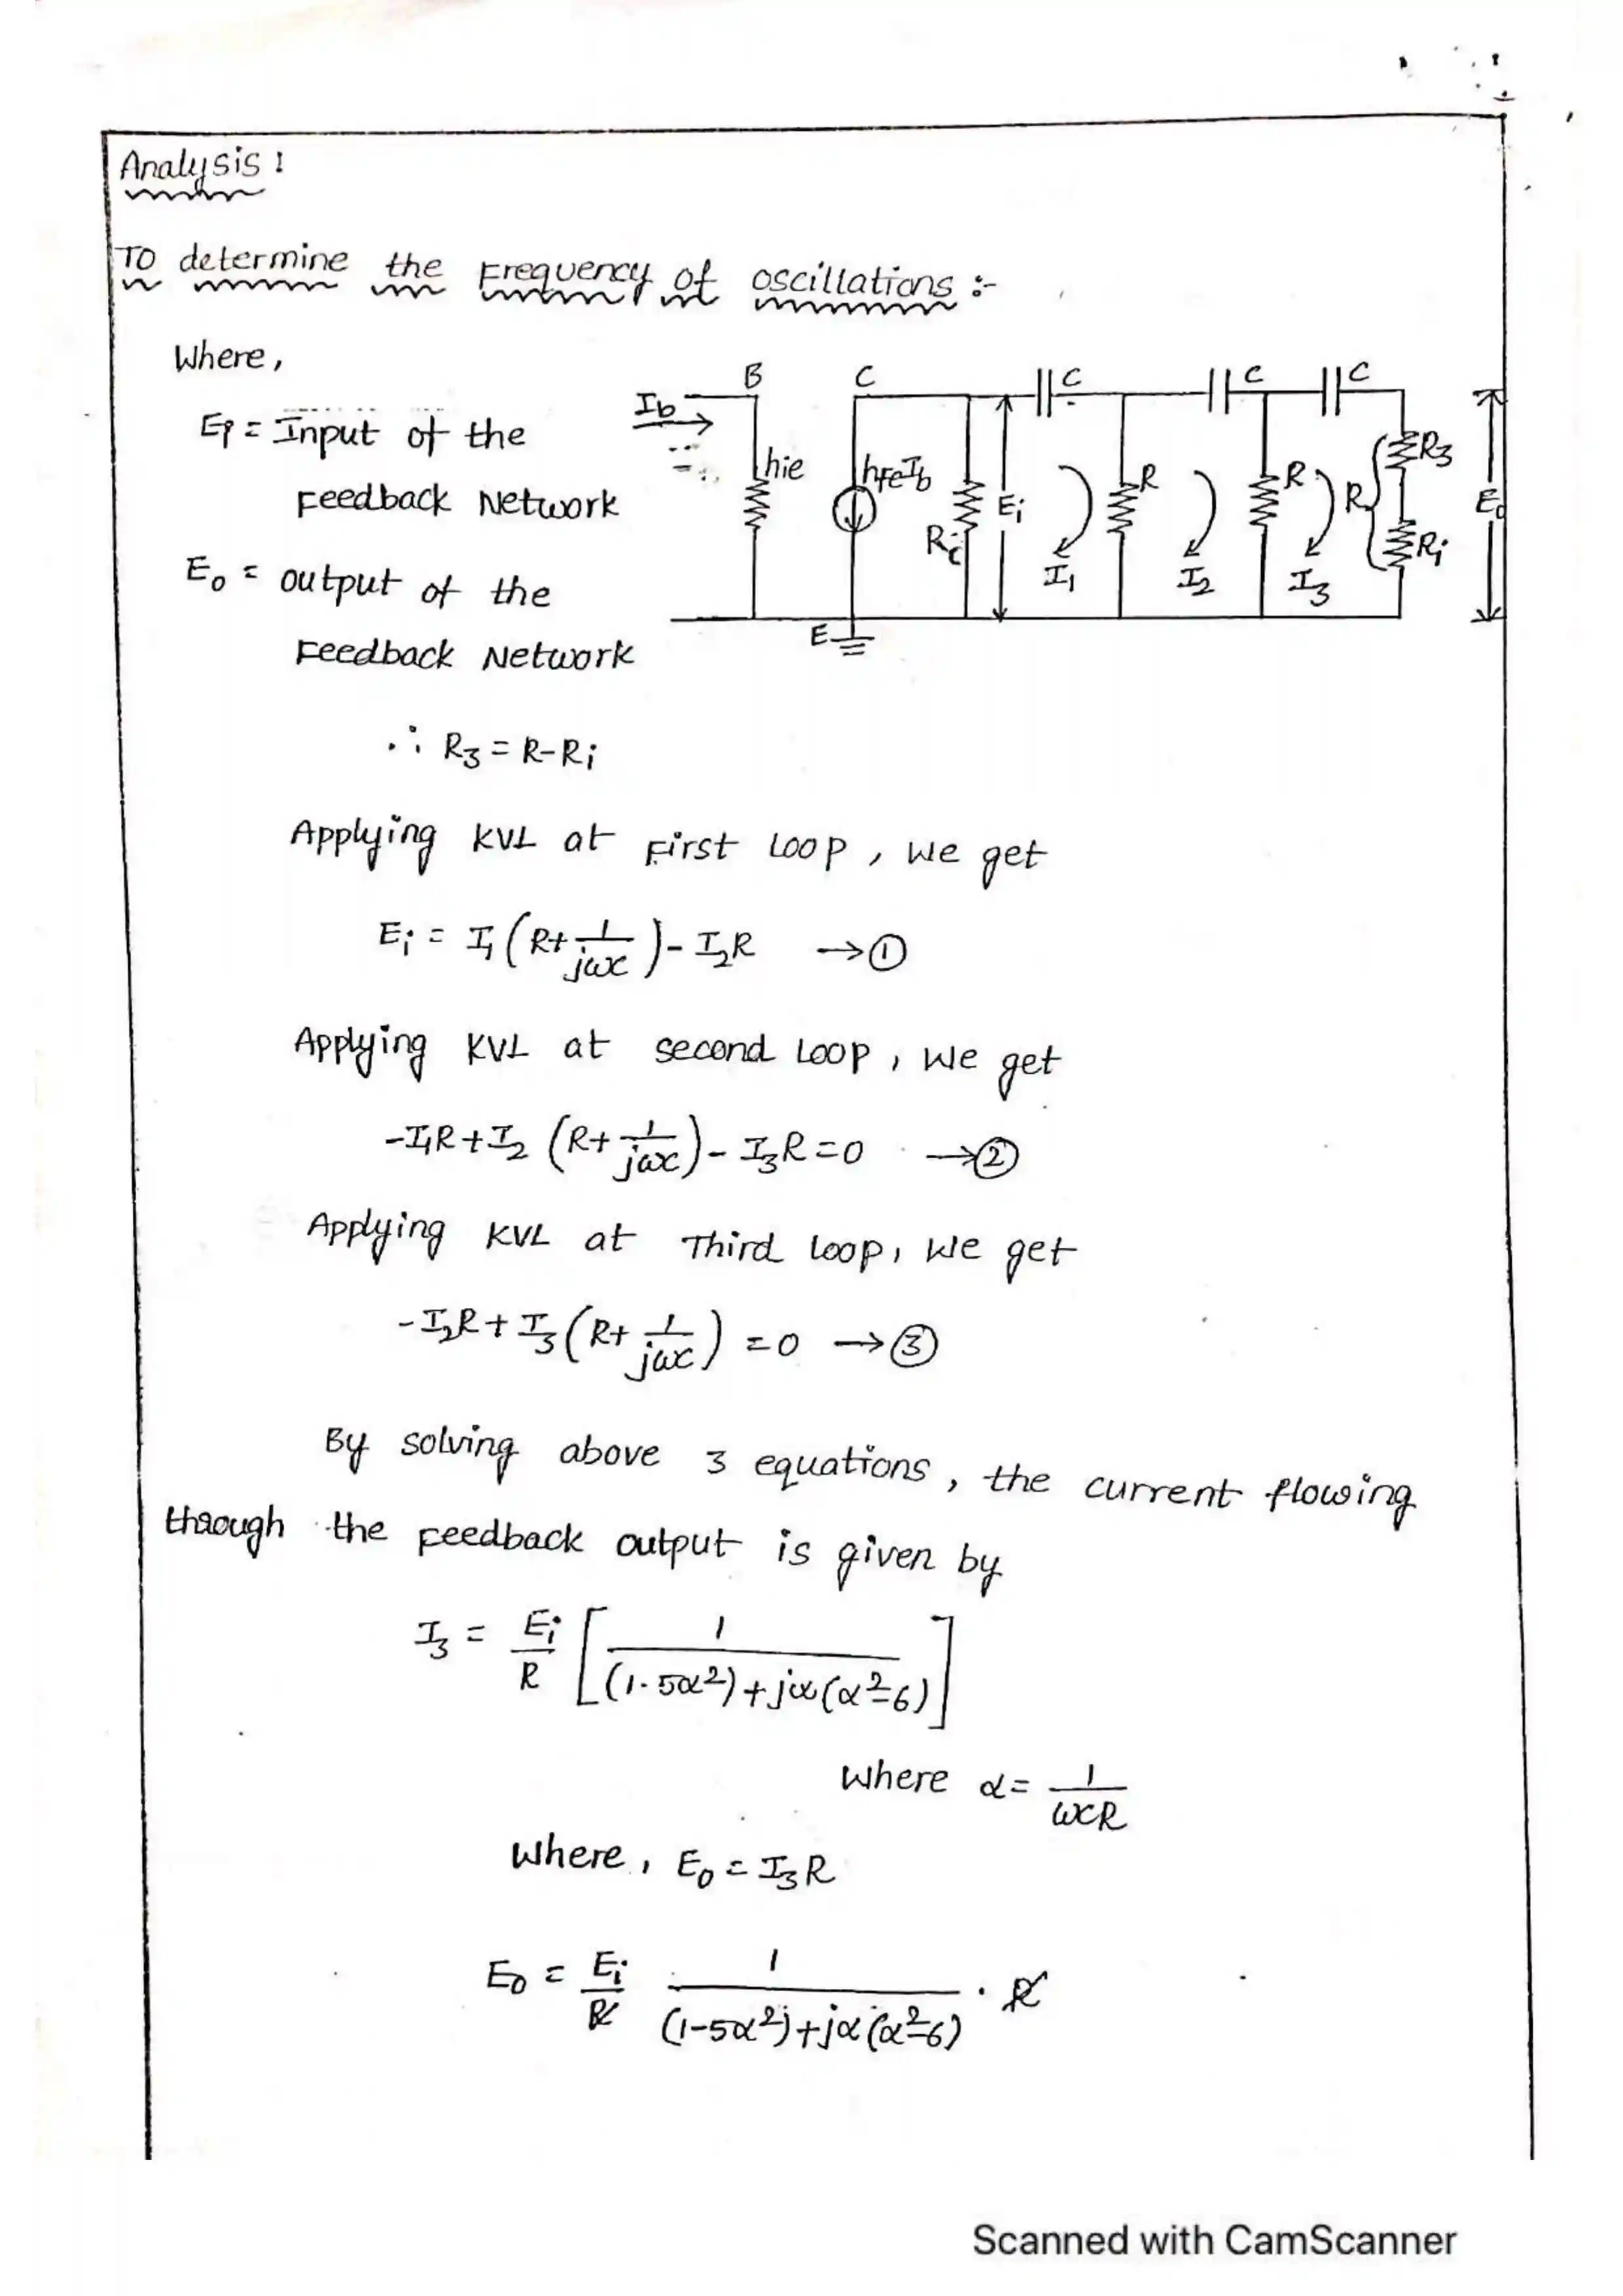 Analysis :
To determine the Frequency of oscillations :-
Where,
Ei = Input of the
Feedback Network
Eo = output of the
Feedback Network
B C C C C
Ib hie hfeIb Rc Ei R R R R3 Ri Eo
I1 I2 I3
E
∴ R3 = R-Ri
Applying KVL at First Loop, We get
Ei = I1 (R + 1/jωc) - I2R → ①
Applying KVL at second Loop, We get
-I1R + I2 (R + 1/jωc) - I3R = 0 → ②
Applying KVL at Third Loop, We get
-I2R + I3 (R + 1/jωc) = 0 → ③
By solving above 3 equations, the current flowing
through the Feedback output is given by
I3 = Ei/R [1/((1-5α²)+jα(α²-6))]
Where α = 1/ωCR
Where, Eo = I3R
Eo = Ei/R 1/((1-5α²)+jα(α²-6)) . R
Scanned with CamScanner